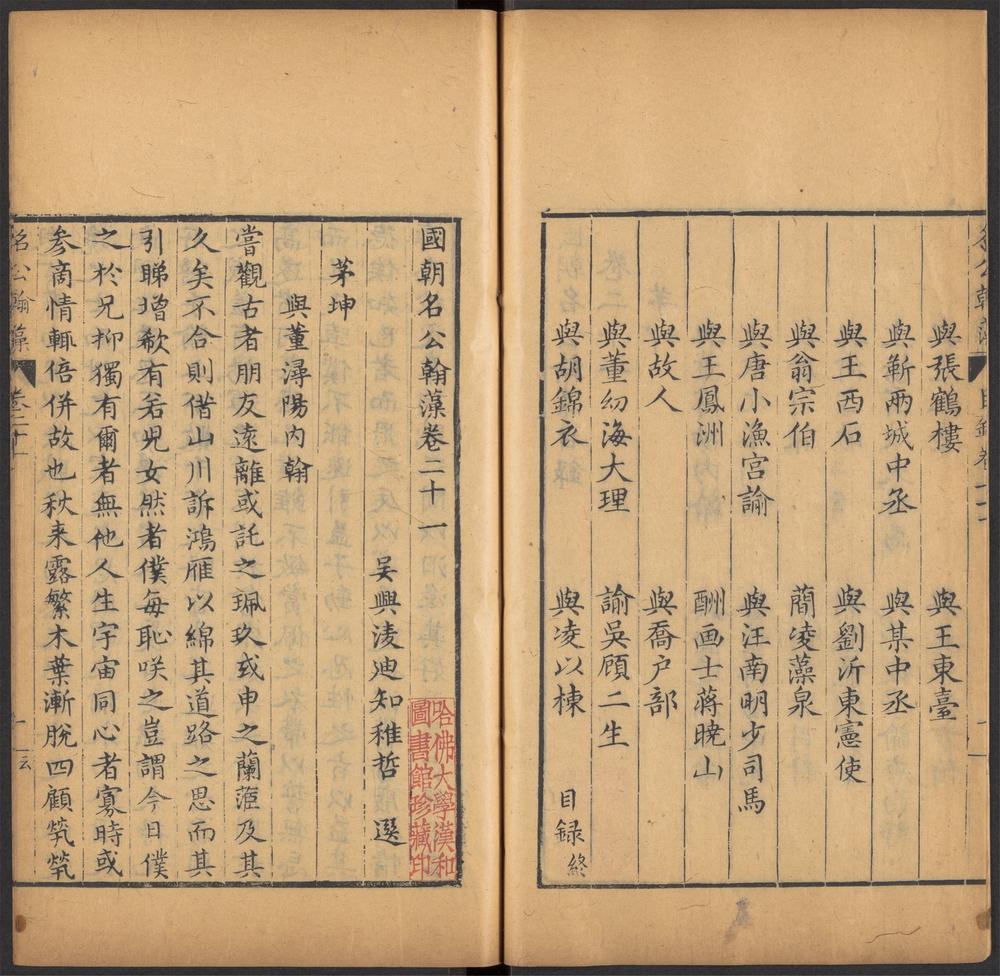 與張鶴樓 與王東臺
與靳兩城中丞 與某中丞
與王西石 與劉沂東憲使
與翁宗伯 蕳凌藻泉
與唐小漁宫諭 與汪南明少司馬
與王鳳洲 酬画士蒋曉山
與故人 與喬户部
與董幼海大理 諭吳顧二生
與胡錦衣 與凌以棟 目録終
國朝名公翰藻卷二十一
吴興凌迪知稚哲 選
茅坤
與董潯陽内翰
嘗觀古者朋友遠離或託之珮玖或申之蘭茝及其
久矣不合則借山川訴鴻雁以綿其道路之思而其
引睇增欷有若兒女然者僕每恥咲之豈謂今日僕
之於兄抑獨有爾者無他人生宇宙同心者寡時或
参啇情輒倍併故也秋来露繁木葉漸脫四顧煢煢
名公翰藻 卷二十一
哈佛大學漢和
圖書館珍藏印